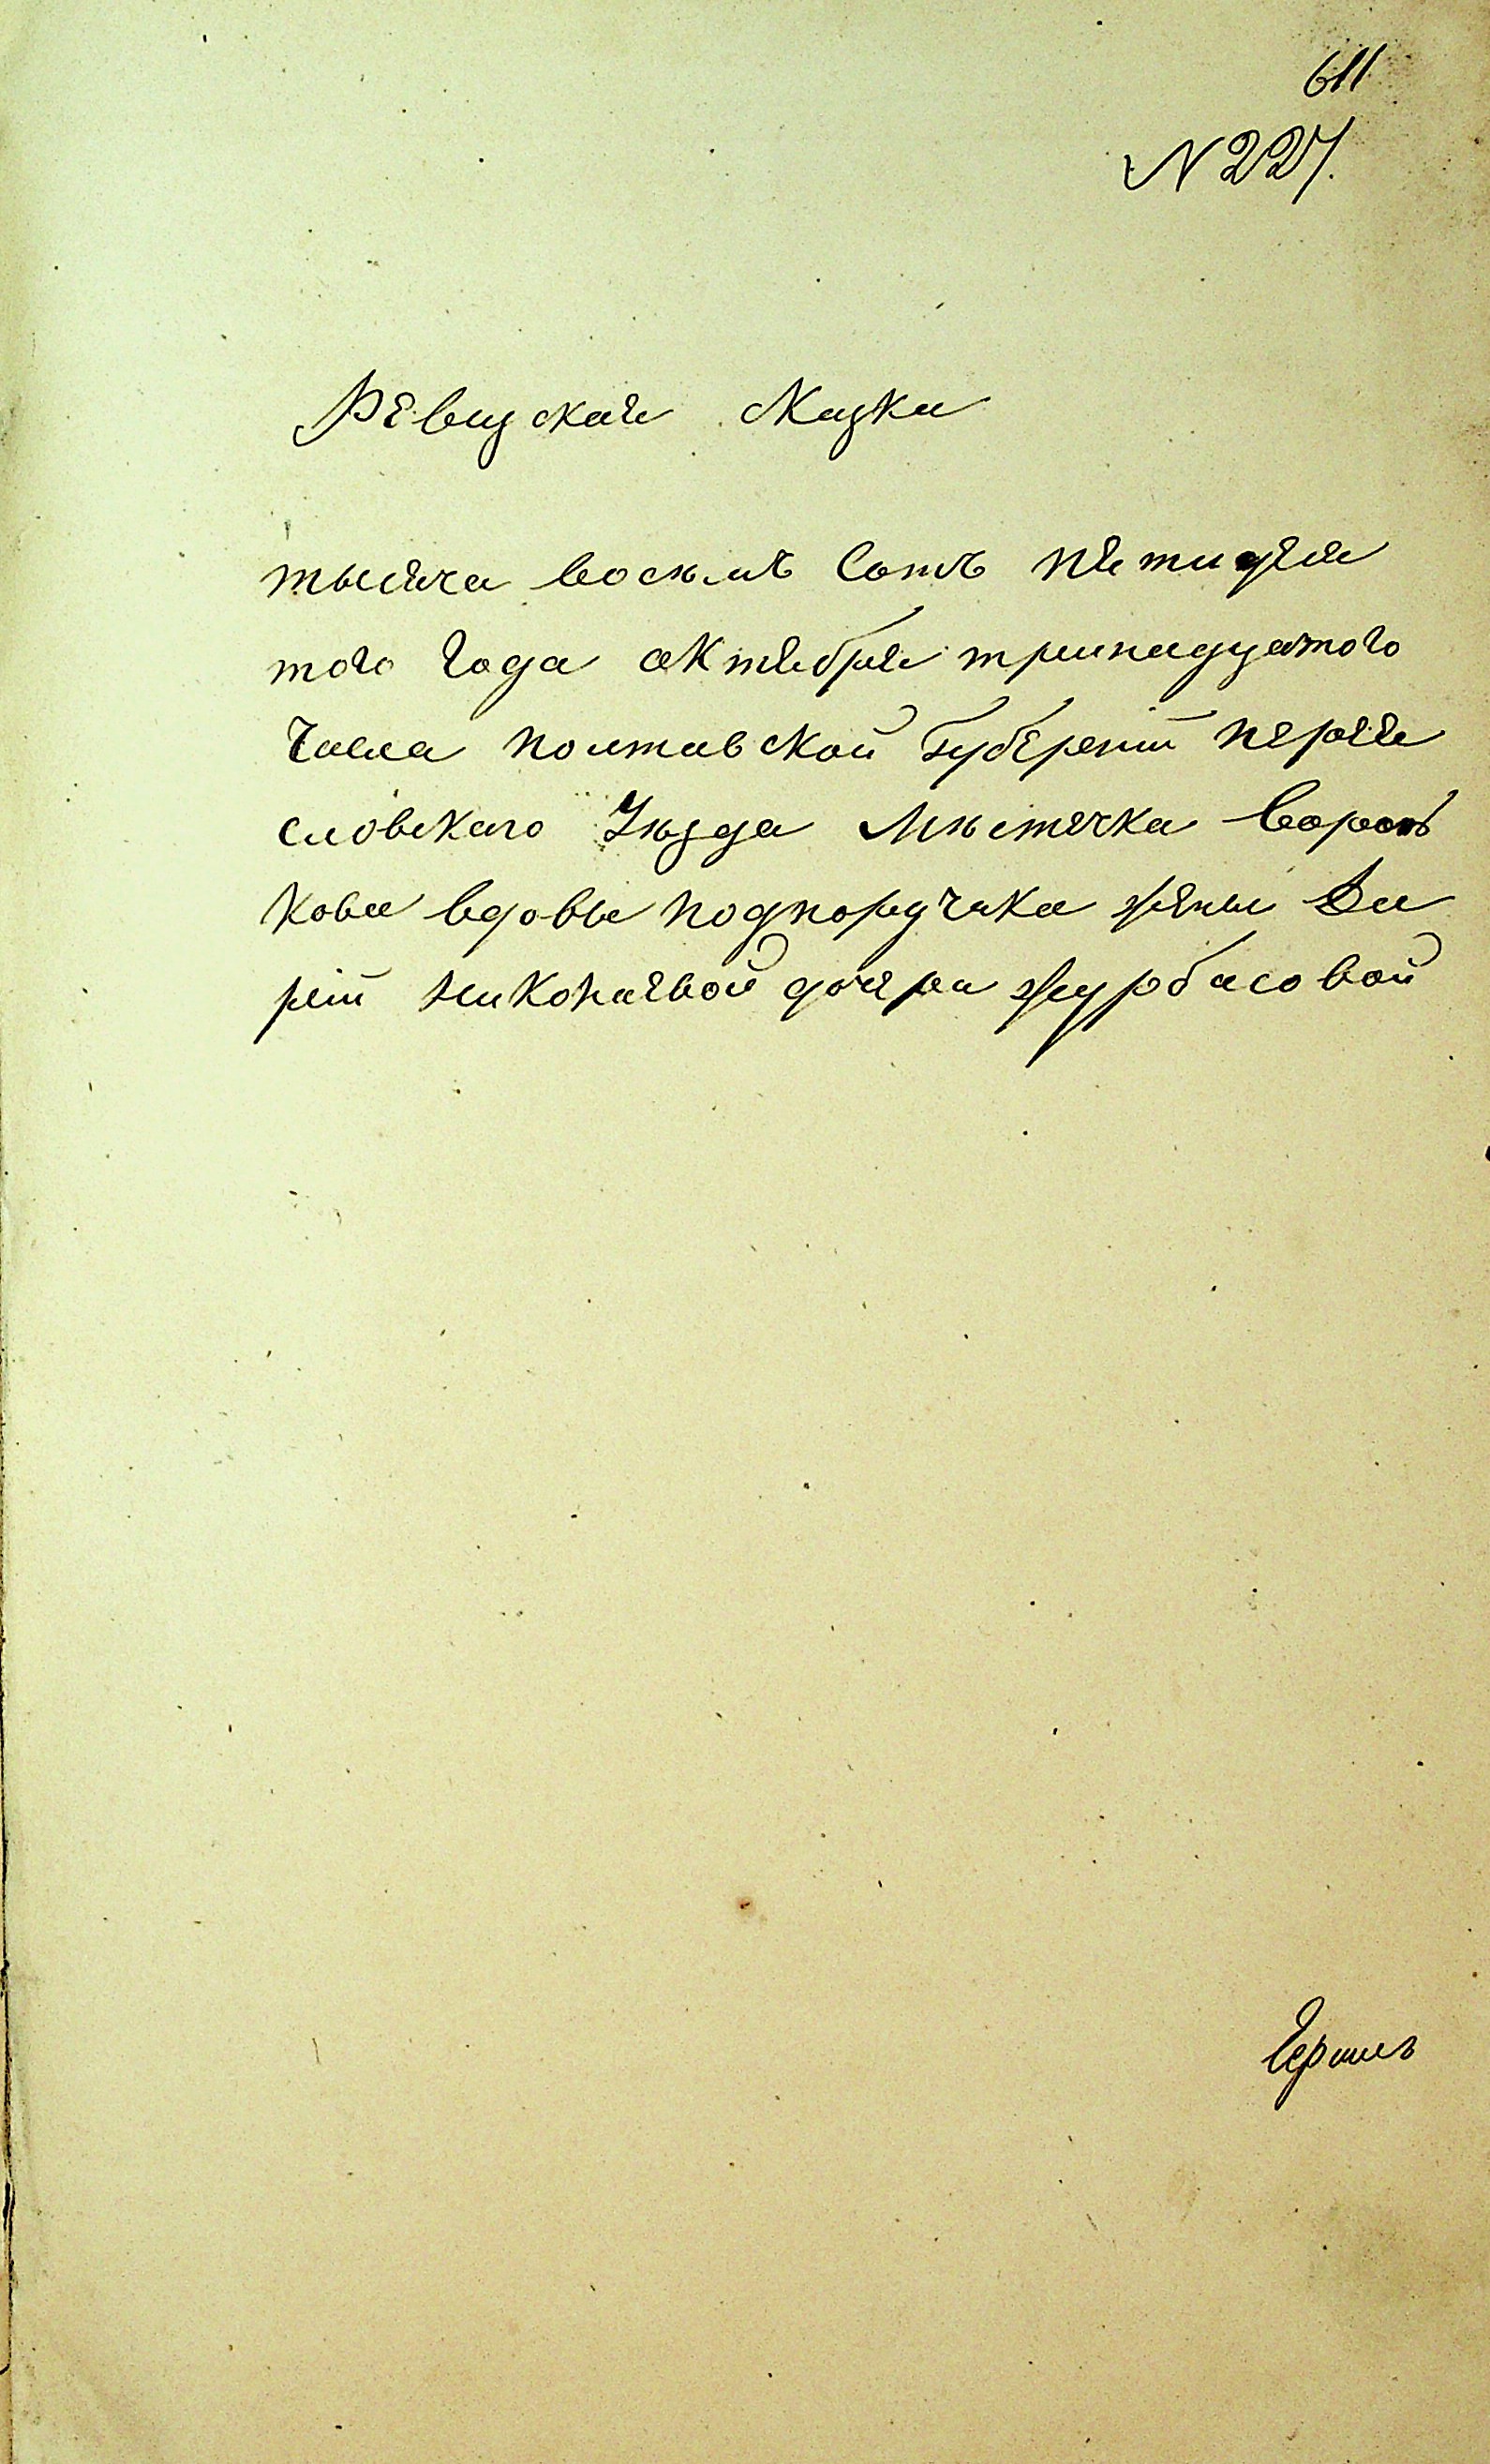 611
N 227.
Ревизская сказка
тысяча восемъ сотъ пятидеся
того года октября тринадцатого
числа полтавской Губерніи перея
словскаго Уѣзда мѣстечка воронь
кова вдовы подпоручика жены Да
ріи николаевой дочери журбасовой